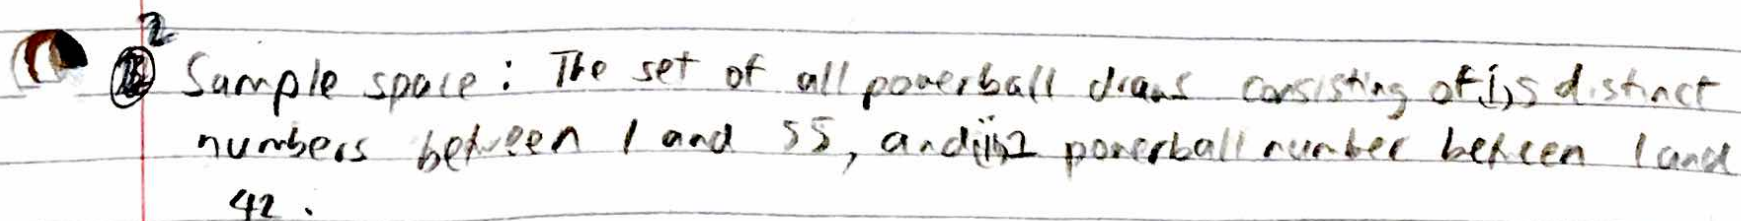 2
Sample space: The set of all powerball draws consisting of i) 5 distinct
numbers between 1 and 55, and ii) 1 powerball number beteen 1 and
42.